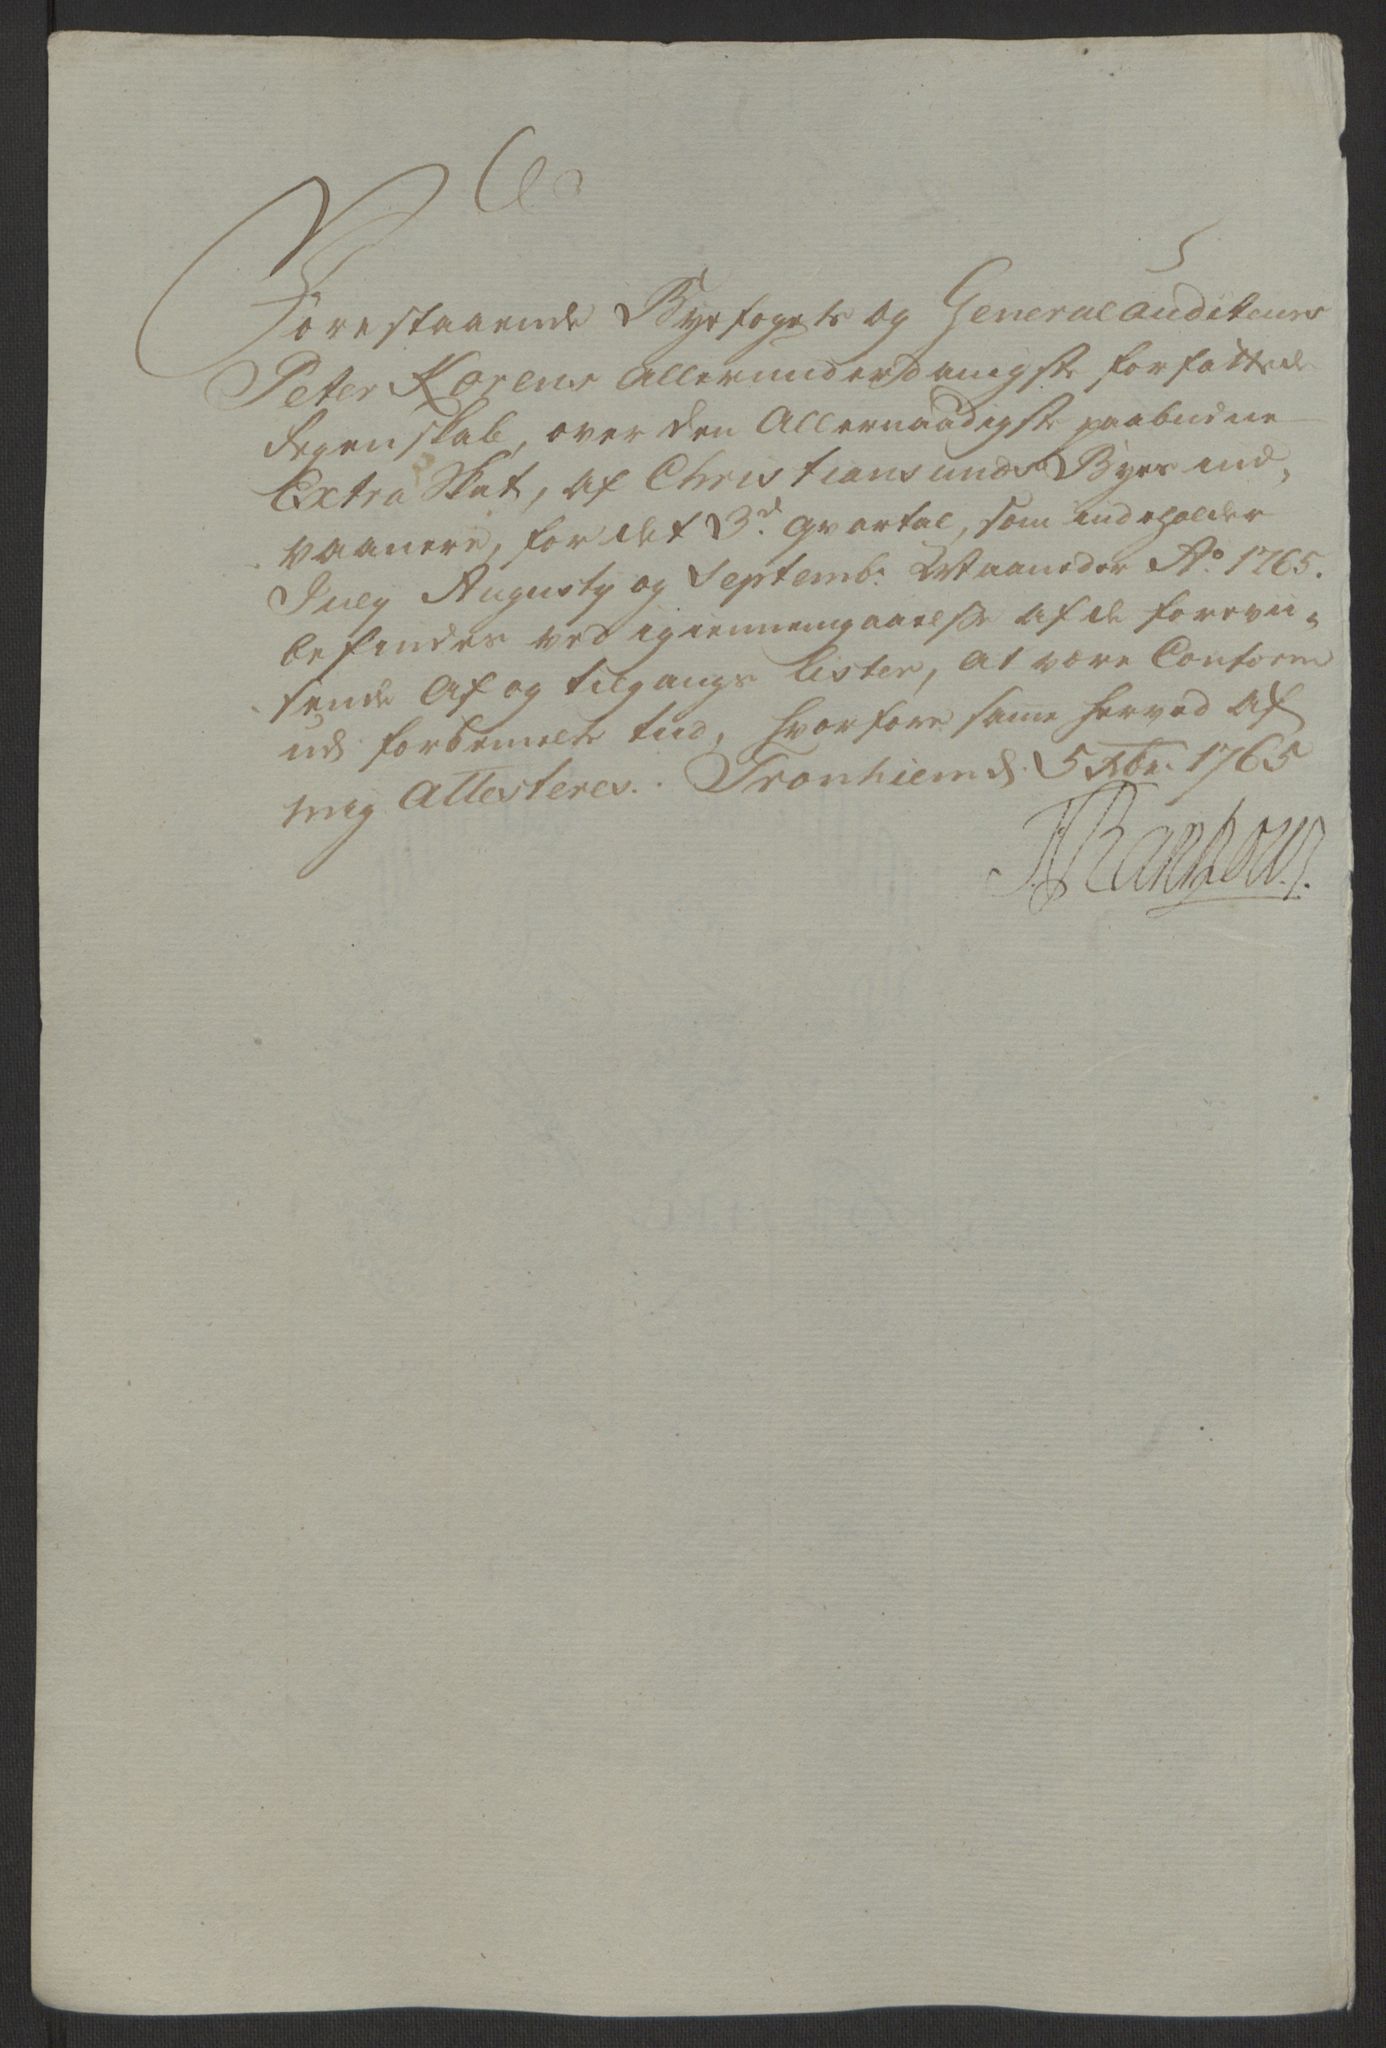 Forestaaende Byefogets og General auditeurs
Peter Korens allerunderdanigst forfattede
Regenskab, over den Allernaadigst paabudne
Extra Skat, af Christiansunds Byes ind-
vaanere, for det 3d. qvartal, som indeholder
July Augusty og Septembr. Maaneder Ao. 1765.
befindes ved igiennemgaaelse af de forevii-
sende Af og tilgangs Lister, at være Conform
udj forbemelte tiid, hvorfore same herved af
mig Attesteres. Tronhiem d. 5 Xbr. 1765